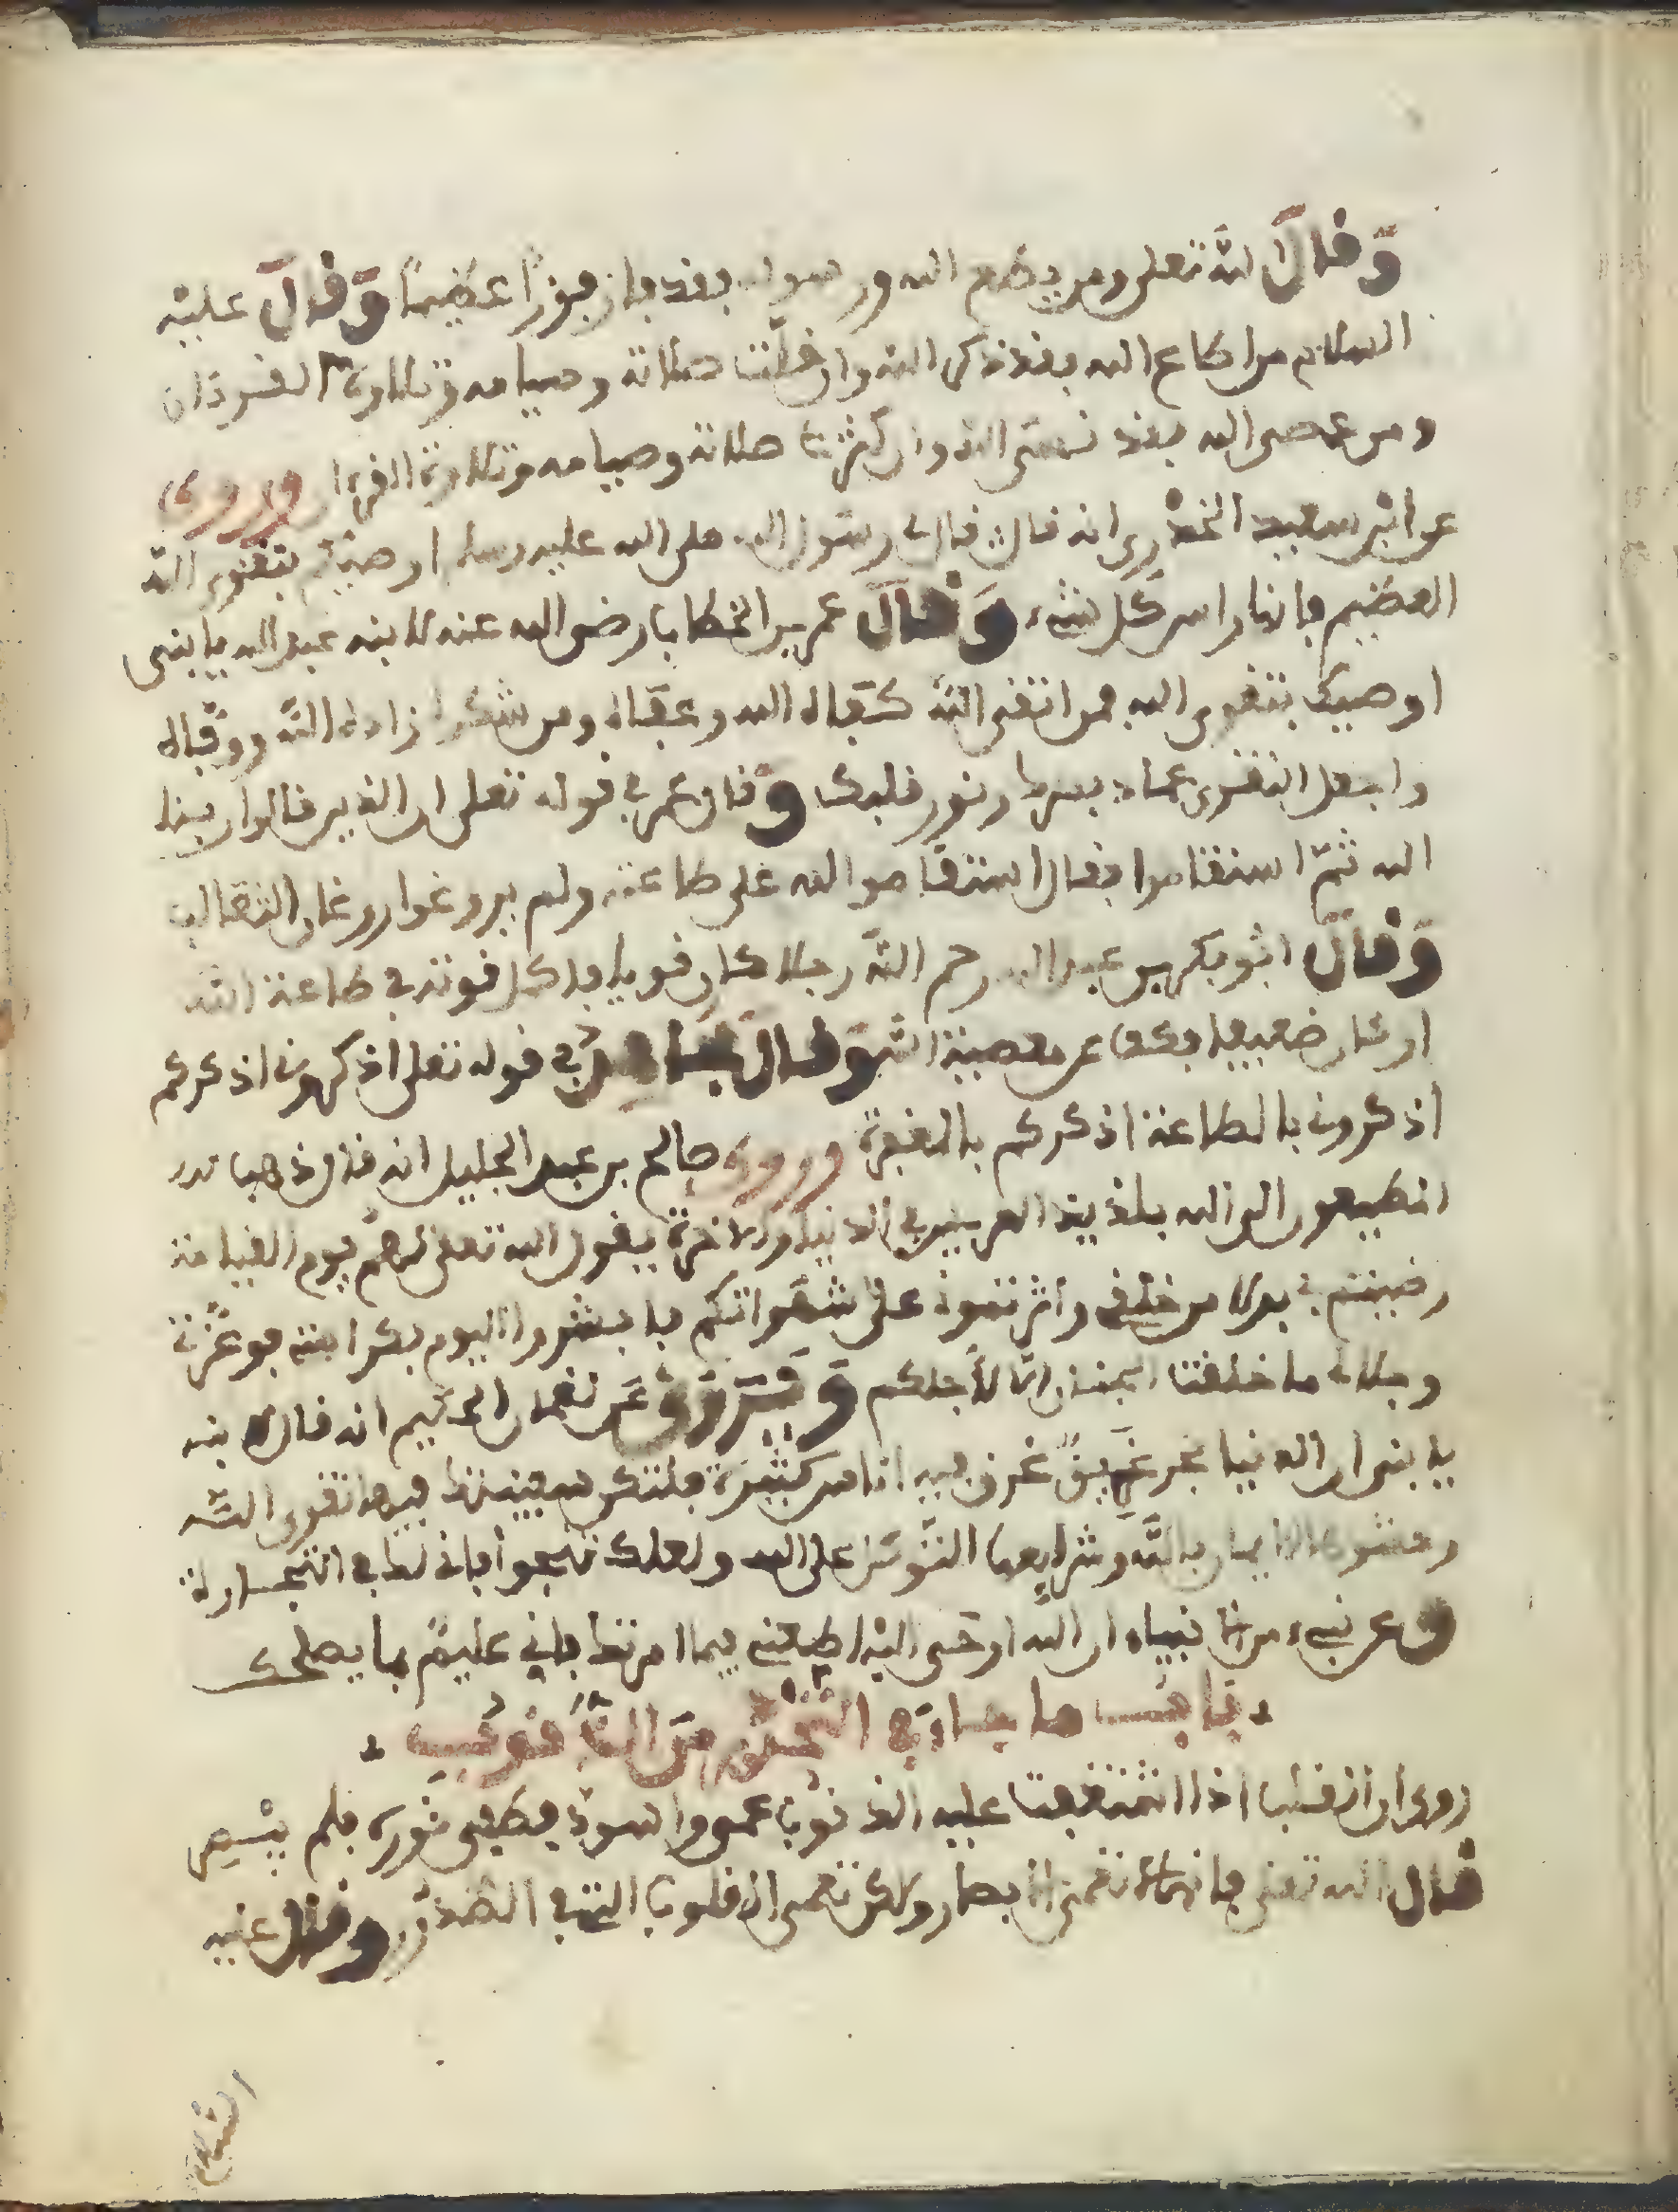 وقال الله تعلى ومن يطع الله ورسوله فقد فاز فوزا عظيما وقال عليه
السلام من اطاع الله فقد ذكر الله وان قلت صلاته وصيامه وتلاوته القرءان
ومن عصى الله فقد نسى الله وان كثرت صلاته وصيامه وتلاوته القرءان وروى
عن ابي سعيد الخذري انه قال قال لي رسول الله صلى الله عليه وسلم اوصيكم بتقوى الله
العظيم فانها راس كل شيء وقال عمر بن الخطاب رضي الله عنه لابنه عبد الله يا بني
اوصيك بتقوى الله فمن اتقى الله كفاه الله و ومن شكر زاده الله ووقاه
واجعل التقوى عماد بصرك ونور قلبك وقال عمر في قوله تعلى ان الذين قالوا ربنا
الله ثم استقاموا فقال استقاموا لله على طاعته ولم يروغوا روغان الثعالب
وقال ابو بكر بن عبد الله رحم الله رجلا كان قويا قوته في طاعة الله
او كان ضعيفا فكف عن معصية الله وقال في قوله تعلى اذكروني اذكركم
اذكروني بالطاعة اذكركم بالمغفرة وروى صالح بن عبد الجليل انه قال ذهب
المطيعون الى الله بلذيذ العيش في الدنيا والاخرة يقول الله تعلى لهم يوم القيامة
رضيتم بي بدلا من خلقي واثرتموني على شهواتكم فابشروا اليوم بكرامتي فوعزتي
وجلالي ما خلقت الجنة الا لاجلكم ويروى عن لقمان الحكيم انه قال لابنه
يا بني ان الدنيا بحر عميق غرق فيه اناس كثيرة فلتكن سفينتك فيها تقوى الله
وحشوها الايمان بالله وشراعها التوكل على الله ولعلك تنجوا فانك في
وعن نبيء من الانبياء ان الله اوحى اليه اطعني فيما امرتك فاني عليم بما يصلحك
باب ما جاء في من الذنوب
روى ان القلب اذا عليه الذنوب عمي واسود فطفي نوره فلم يبصر
قال الله تعلى فانها لا تعمى الابصار ولكن تعمى القلوب التي في الصدور وقال عليه
السلام